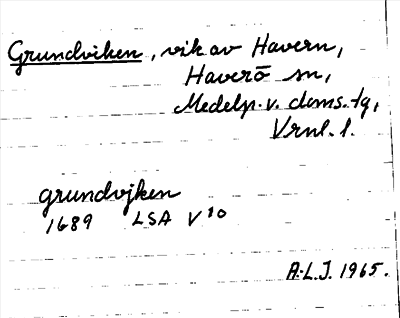 Grundviken, vik av Havern,
Haverö sn,
Medelp. v. doms.-tg,
Vrnl. l.
grundvjken
1689 LSA V 10
A.L.J. 1965.